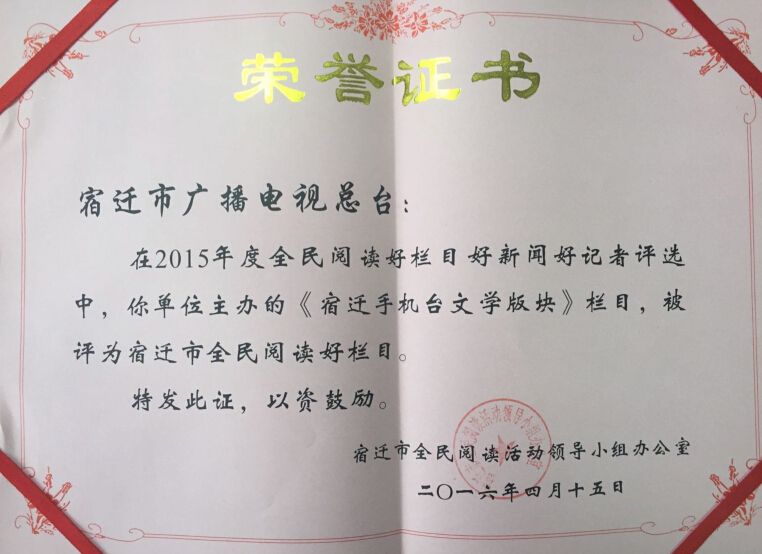 荣誉证书
宿迁市广播电视总台：
在2015年度全民阅读好栏目好新闻好记者评选
中，你单位主办的《宿迁手机台文学版块》栏目，被
评为宿迁市全民阅读好栏目。
特发此证，以资鼓励。
宿迁市全民阅读活动领导小组办公室
二〇一六年四月十五日